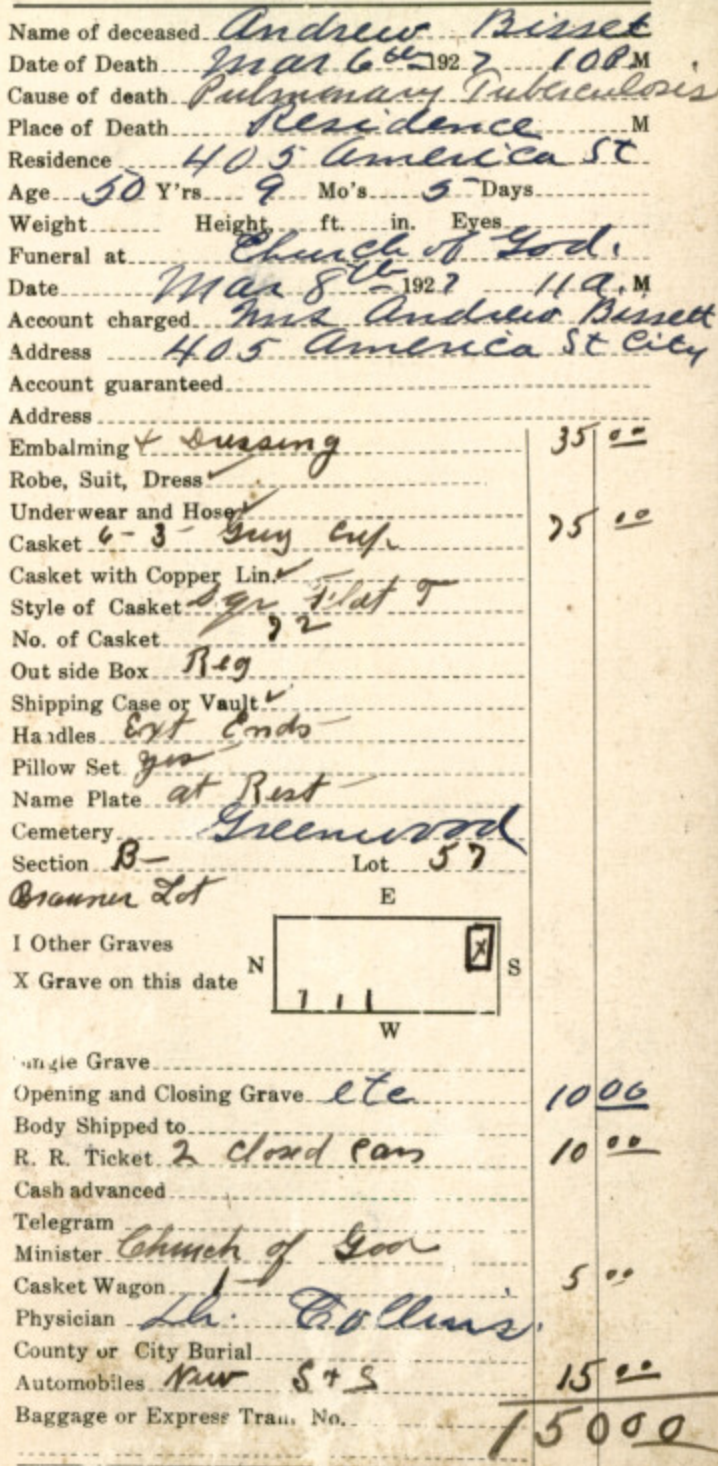 Name of deceased Andrew Bisset
Date of Death Mar 6th 1927 10 P M
Cause of death Pulmonary Tuberculosis
Place of Death Residence M
Residence 405 America St
Age 50 Y'rs 9 Mo's 5 Days
Weight Height ft. in. Eyes
Funeral at Church of God.
Date Mar 8th 1927 11 a. M
Account charged Mrs Andrew Bissett
Address 405 America St City
Account guaranteed
Address
Embalming + Dressing 35 00
Robe, Suit, Dress ✓
Underwear and Hose ✓
Casket 6-3- Grey Crp. 75 00
Casket with Copper Lin. ✓
Style of Casket Sqr Flat T
No. of Casket 72
Out side Box Reg
Shipping Case or Vault ✓
Handles Ext Ends
Pillow Set yes
Name Plate at Rest
Cemetery Greenwood
Section B- Lot 57
Brauner Lot
E
I Other Graves
N S
X
X Grave on this date
W
ngle Grave
Opening and Closing Grave etc 10 00
Body Shipped to
R. R. Ticket 2 Closed Cars 10 00
Cash advanced
Telegram
Minister Church of God
Casket Wagon 1 5 00
Physician Dr. Collins.
County or City Burial
Automobiles New S + S 15 00
Baggage or Express Tran. No.
150 00